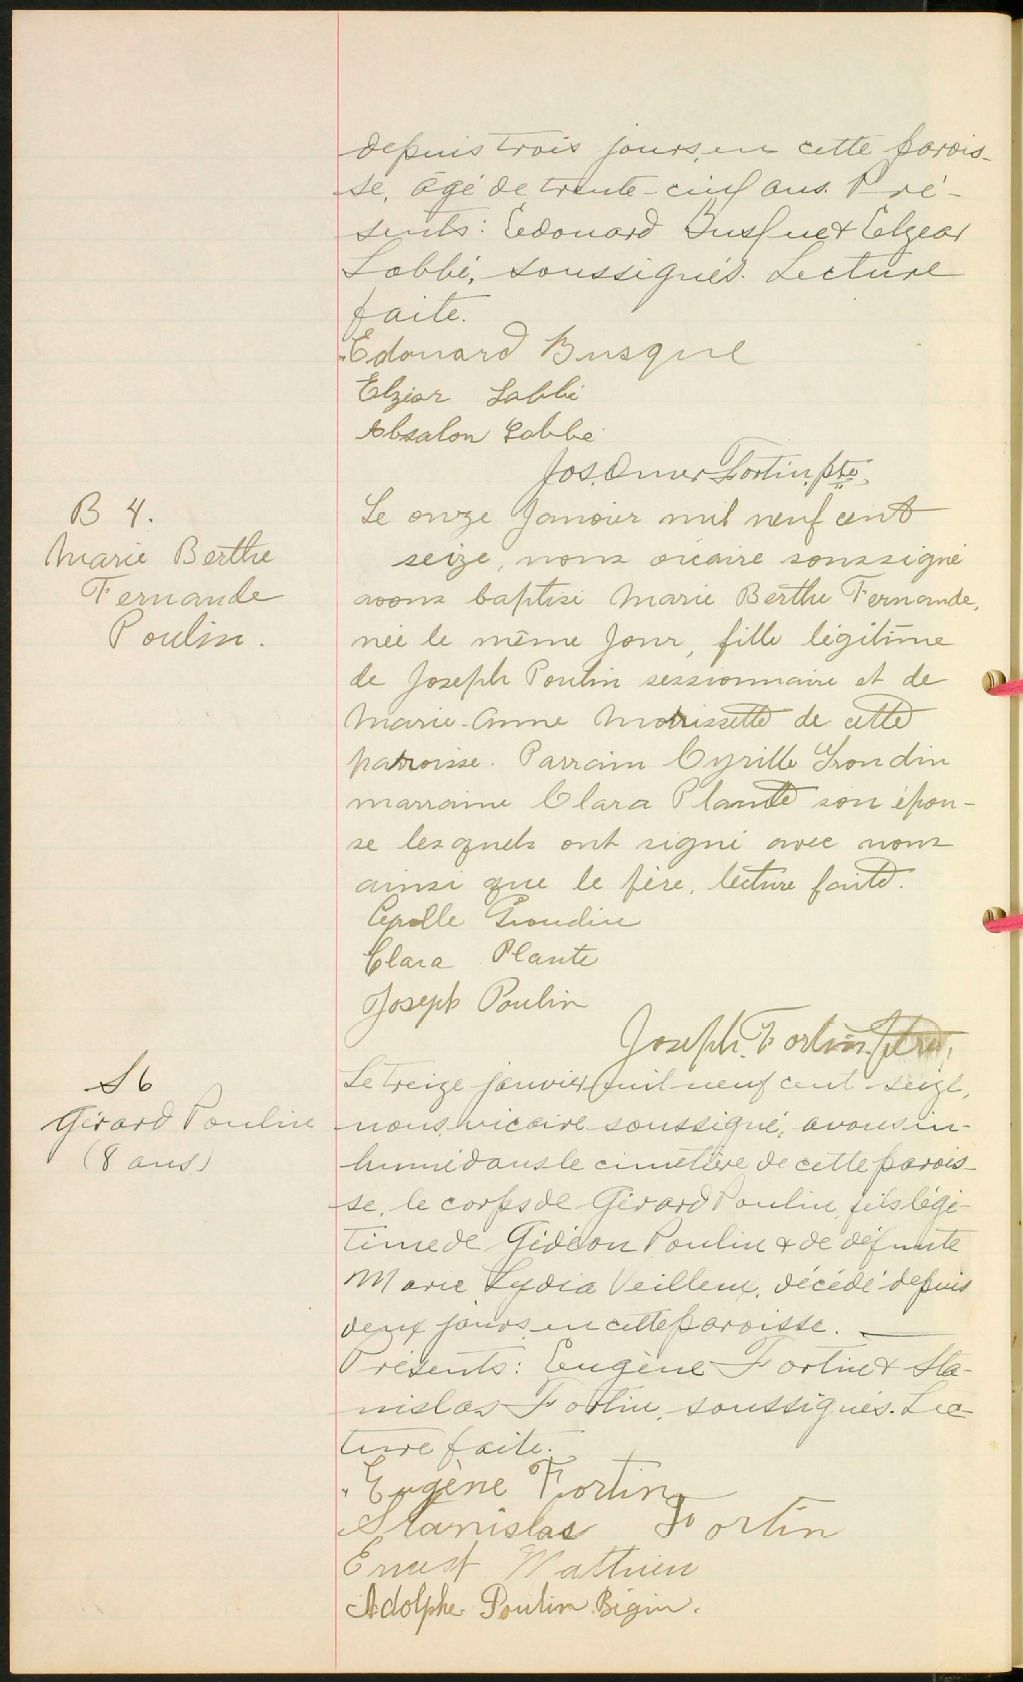 depuis trois jours, en cette parois-
se, âgé de trente-cinq ans. Pré-
sents: Edouard Busque & Elzear
Labbé, soussignés. Lecture
faite.
Edouard Busque
Elzéar Labbé
Absalon Labbé
Jos. Omer Fortin, ptre,
B 4.
Marie Berthe
Fernande
Poulin.
Le onze Janvier mil neuf cent
seize, nous vicaire soussigné
avons baptisé Marie Berthe Fernande,
née le même Jour, fille légitime
de Joseph Poulin sessionnaire et de
Marie-Anne Morrissette de cette
parroisse. Parrain Cyrille Grondin
marraine Clara Plante son épou-
se lesquels ont signé avec nous
ainsi que le père, lecture faite.
Cyrille Grondin
Clara Plante
Joseph Poulin
Joseph. Fortin. Ptre,
S 6
Gérard Poulin
(8 ans)
Le treize janvier mil neuf cent seize,
nous, vicaire soussigné, avons in-
humé dans le cimetière de cette parois-
se, le corps de Gérard Poulin, fils légi-
time de Gédéon Poulin & de défunte
Marie Lydia Veilleux, décédé depuis
deux jours, en cette paroisse.
Présents: Eugène Fortin & Sta-
nislas Fortin, soussignés. Lec-
ture faite.
Eugène Fortin
Stanislas Fortin
Ernest Mathieu
Adolphe Poulin Bigin.